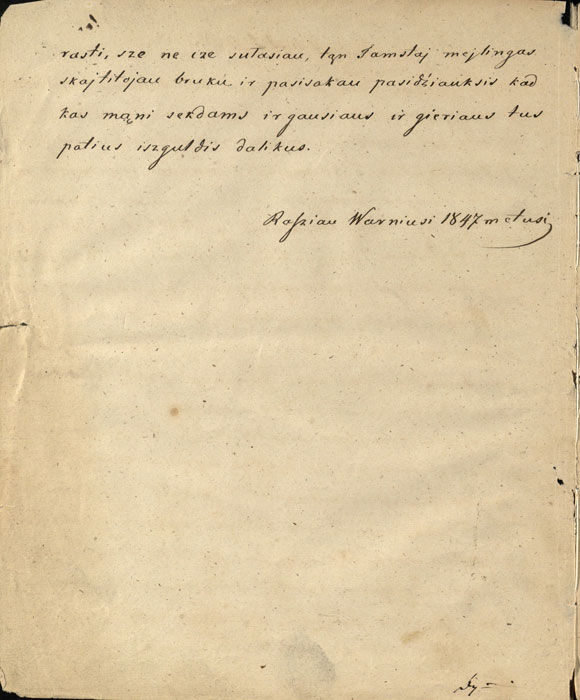 rasti, sze ne cze sutasiau, tąn Tamstaj mejlingas
skajtitojau bruku ir pasisakau pasidźiauksis kad
kas mąni sekdams ir gausiaus ir gieriaus tus
patius iszguldis dalikus.
Raſziau Warniusi 1847 metusi